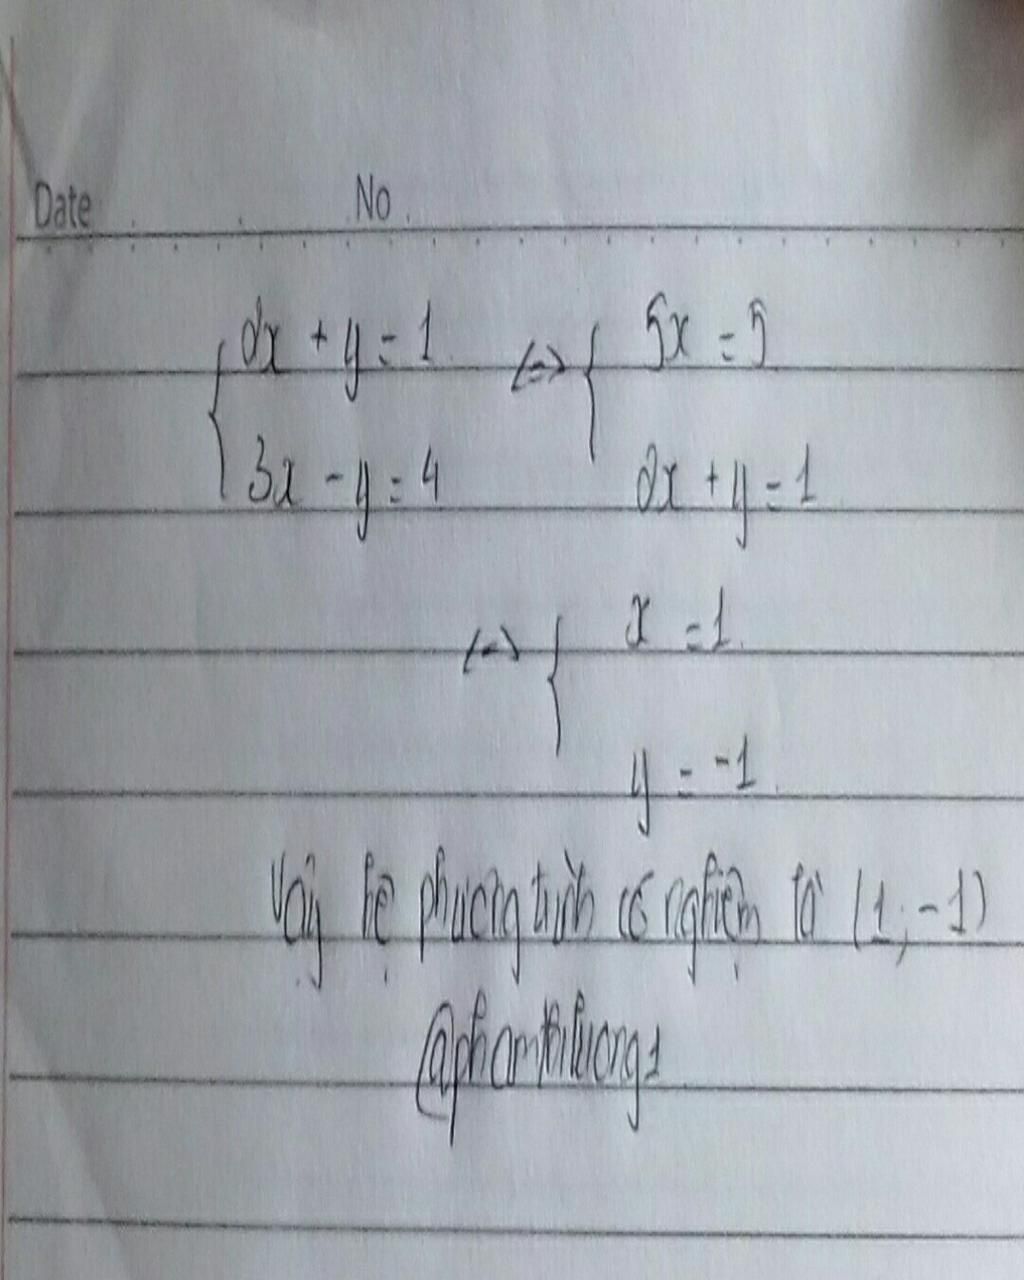 Date No
2x + y = 1 <=> 5x = 5
3x - y = 4 2x + y = 1
<=> x = 1
y = -1
Vậy hệ phương trình có nghiệm là (1; -1)
@phamthiluong1